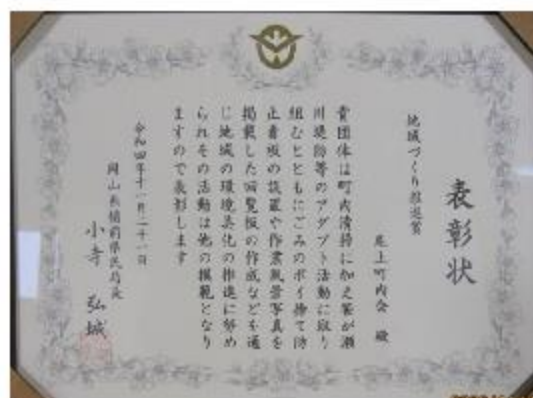 表彰状
地域づくり推進賞
尾上町内会 殿
貴団体は町内清掃に加え笹が瀬
川堤防等のアダプト活動に取り
組むとともにごみのポイ捨て防
止看板の設置や作業風景写真を
掲載した回覧板の作成などを通
じ地域の環境美化の推進に努め
られその活動は他の模範となり
ますので表彰します
令和四年十一月二十一日
岡山県備前県民局長
小寺 弘城